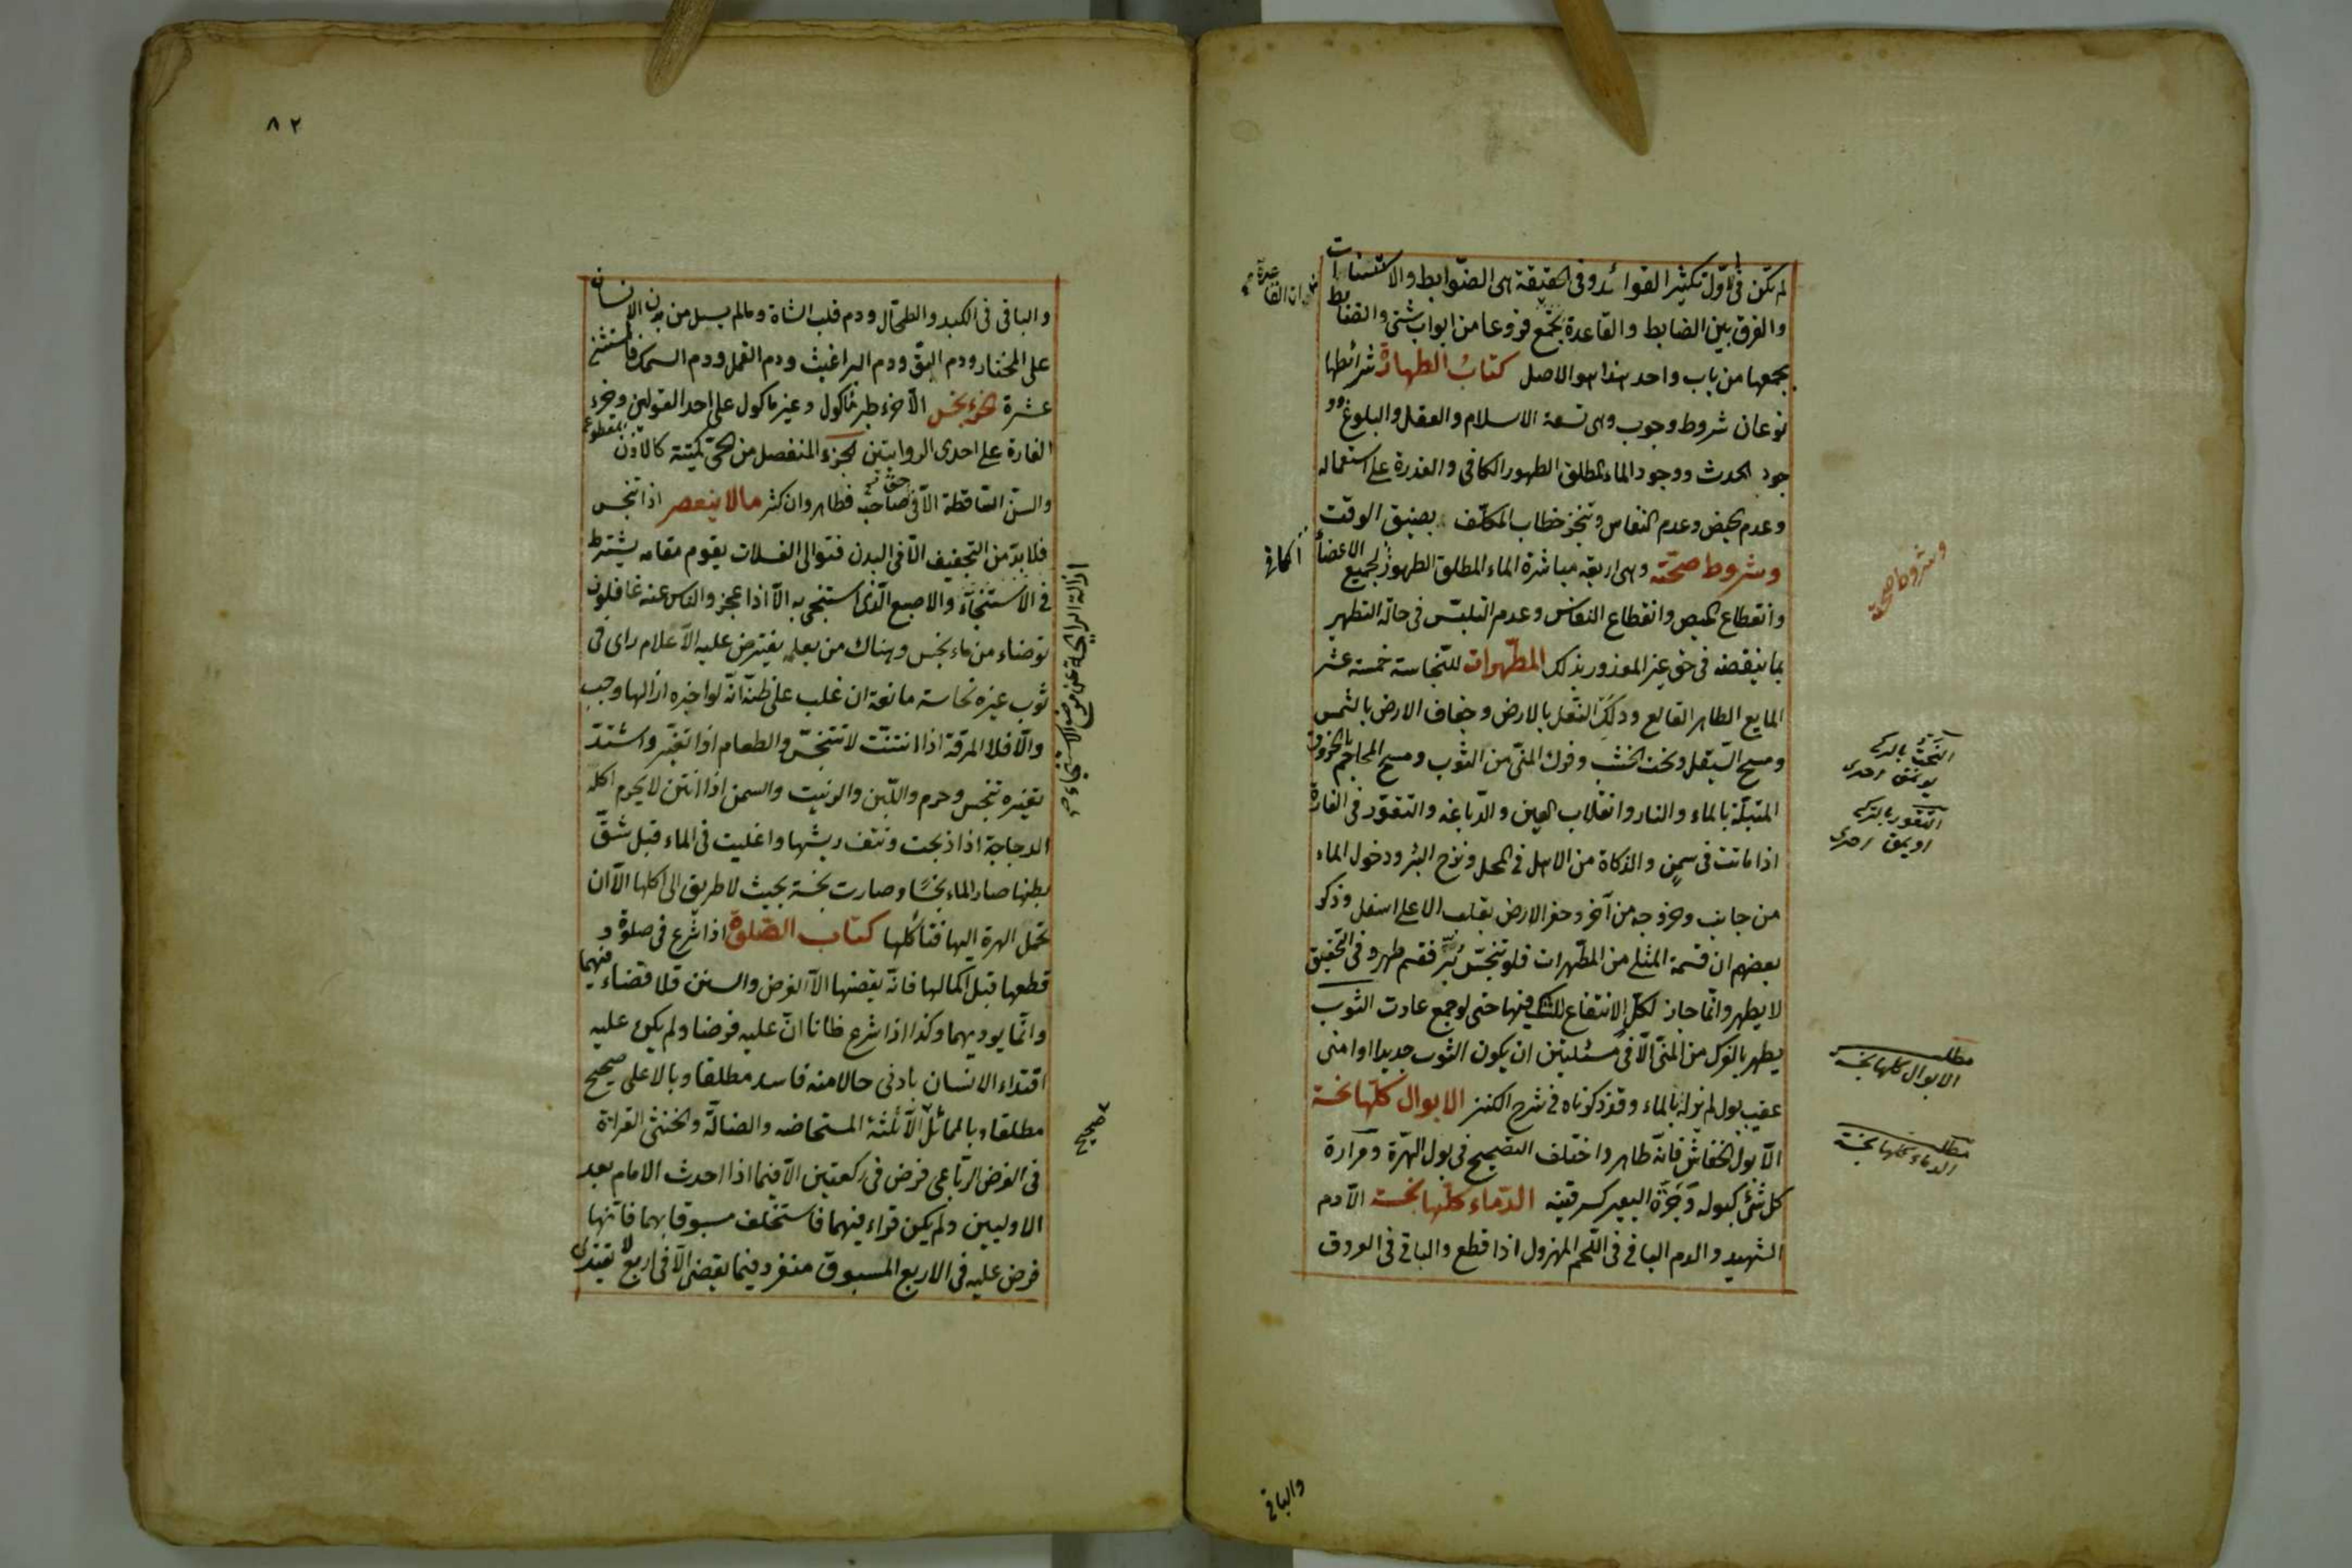 لم تكن في الاول تكثير الفوائد وفي الحقيقة هي الضوابط والاستثناات
والفرق بين الضابط والقاعدة تجمع فروعا من ابواب شتى والضابط
يجمعها من باب واحد هذا هو الاصل كتاب الطهارة شرائطها
نوعان شروط وجوب وهي تسعة الاسلام والعقل والبلوغ وو
جود الحدث ووجود الماء المطلق الطهور الكافي والقدرة على استعماله
وعدم الحيض وعدم النفاس وتنجز خطاب المكلف بضيق الوقت
وشروط صحته وهي اربعة مباشرة الماء المطلق الطهور لجميع الاعضاء
وانقطاع الحيض وانقطاع النفاس وعدم التلبس في حالة التطهير
بما ينقضه في حق غير المعذور بذلك المطهرات للنجاسة خمسة عشر
المايع الطاهر القالع ودلك النعل بالارض وجفاف الارض بالشمس
ومسح الصيقل ونحت الخشب وفرك المني من الثوب ومسح المحاجم بالخروق
المبتلة بالماء والنار وانقلاب العين والدباغة والتقور في الفارة
اذا ماتت في سمن والذكاة من الاهل في المحل ونزح البئر ودخول الماء
من جانب وخروجه من آخر وحفر الارض بقلب الاعلى اسفل وذكر
بعضهم ان قسمة المثلي من المطهرات فلو تنجس بر فقسم طهر وفي التحقيق
لا يطهر وانما جاز لكل الانتفاع للشك فيها حتى لو جمع عادت الثوب
يطهر بالفرك من المني الا في مسئلتين ان يكون الثوب جديدا او امنى
عقيب بول لم يزله بالماء وقد ذكرناه في شرح الكنز الابوال كلها نجسة
الا بول الخفاش فانه طاهر واختلف التصحيح في بول الهرة ومرارة
كل شئ كبوله وجرة البعير كسرقينه الدماء كلها نجسة الا دم
الشهيد والدم الباقي في اللحم المهزول اذا قطع والباقي في العروق
وشروط صحته
النحت بالتركي
يونمق
التقور بالتركي
اويمق
مطلب
الابوال كلها نجسة
مطلب
الدماء كلها نجسة
والباقي
٨٢
والباقي في الكبد والطحال ودم قلب الشاة ومالم يسل من بدن الانسان
على المختار ودم البق ودم البراغيث ودم القمل ودم السمك فالمستثنى
عشرة الخرء نجس الا خرء طير مأكول وغير مأكول على احد القولين وخرء
الفارة على احدى الروايتين الجزء المنفصل من الحي كميتته كالاذن المقطوعة
والسن الساقطة الا في حق صاحبه فطاهر وان كثر مالا ينعصر اذا تنجس
فلا بد من التجفيف الا في البدن فتوالي الغسلات يقوم مقامه يشترط
في الاستنجاء والاصبع الذي استنجى به الا اذا عجز والناس عنه غافلون
توضاء من ماء نجس وهناك من يعلمه يفترض عليه الاعلام راى في
ثوب غيره نجاسة مانعة ان غلب على ظنه انه لو اخبره ازالها وجب
والا فلا المرقة اذا انتنت لا تتنجس والطعام اذا تغير واشتد
تغيره تنجس وحرم واللبن والزيت والسمن اذا انتن لا يحرم اكله
الدجاجة اذا ذبحت ونتف ريشها واغليت في الماء قبل شق
بطنها صار الماء نجسا وصارت نجسة بحيث لا طريق الى اكلها الا ان
تحمل الهرة اليها فتأكلها كتاب الصلوة اذا شرع في صلوة و
قطعها قبل اكمالها فانه يقضيها الا الفرض والسنن فلا قضاء فيهما
وانما يوديهما وكذا اذا شرع ظانا ان عليه فرضا ولم يكن عليه
اقتداء الانسان بادنى حالا منه فاسد مطلقا وبالاعلى صحيح
مطلقا وبالمماثل الا ثلثة المستحاضة والضالة والخنثى القراءة
في الفرض الرباعي فرض في ركعتين الا فيما اذا احدث الامام بعد
الاوليين ولم يكن قراء فيهما فاستخلف مسبوقا بهما فانها
فرض عليه في الاربع المسبوق منفرد فيما يقضي الا في اربع لا يقتدى
صحيح